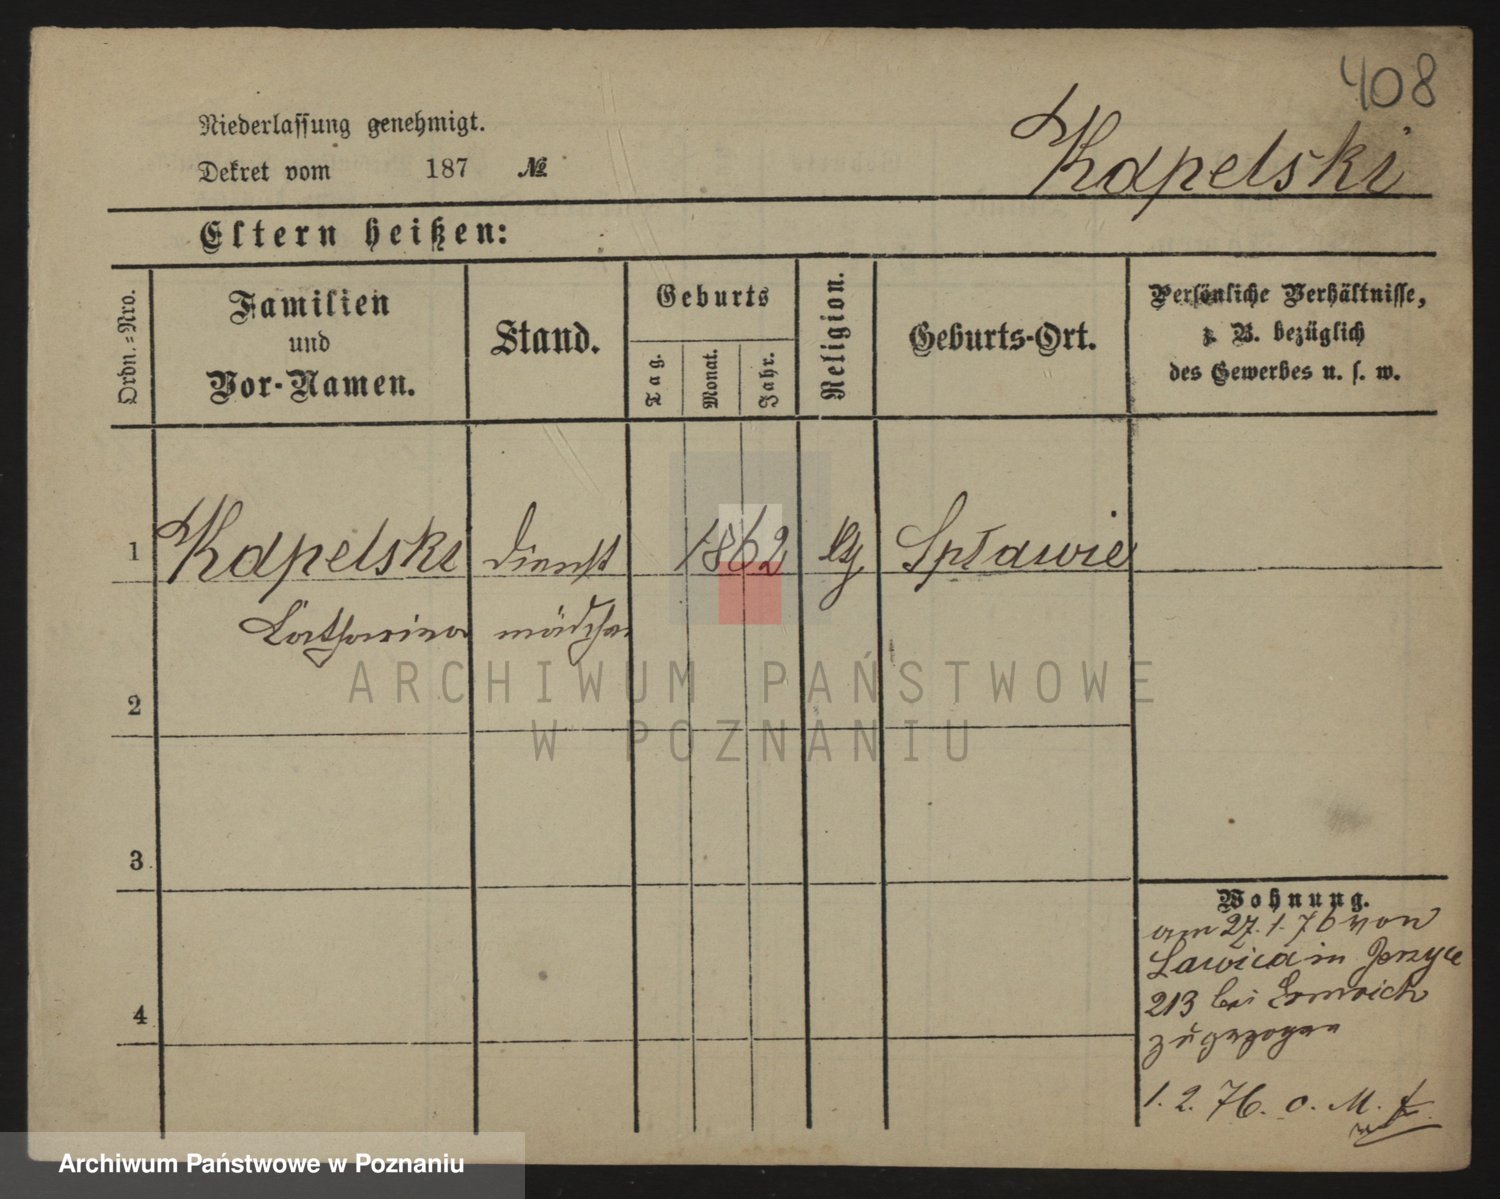 408
Niederlassung genehmigt.
Dekret vom 187 №
Kapelski
Eltern heißen:
Ordn.=Nro.
Familien
und
Vor-Namen.
Stand.
Geburts
Tag.
Monat.
Jahr.
Religion.
Geburts-Ort.
Persönliche Verhältnisse,
z. B. bezüglich
des Gewerbes u. s. w.
1 Kapelski Dienst 1862 Spławie
Catharina mädchen
2
3
4
Wohnung.
am 27.1.76 von
Lawica in Jerzyce
213 bei
zugezogen
1. 2. 76. o. M.
ARCHIWUM PAŃSTWOWE
W POZNANIU
Archiwum Państwowe w Poznaniu